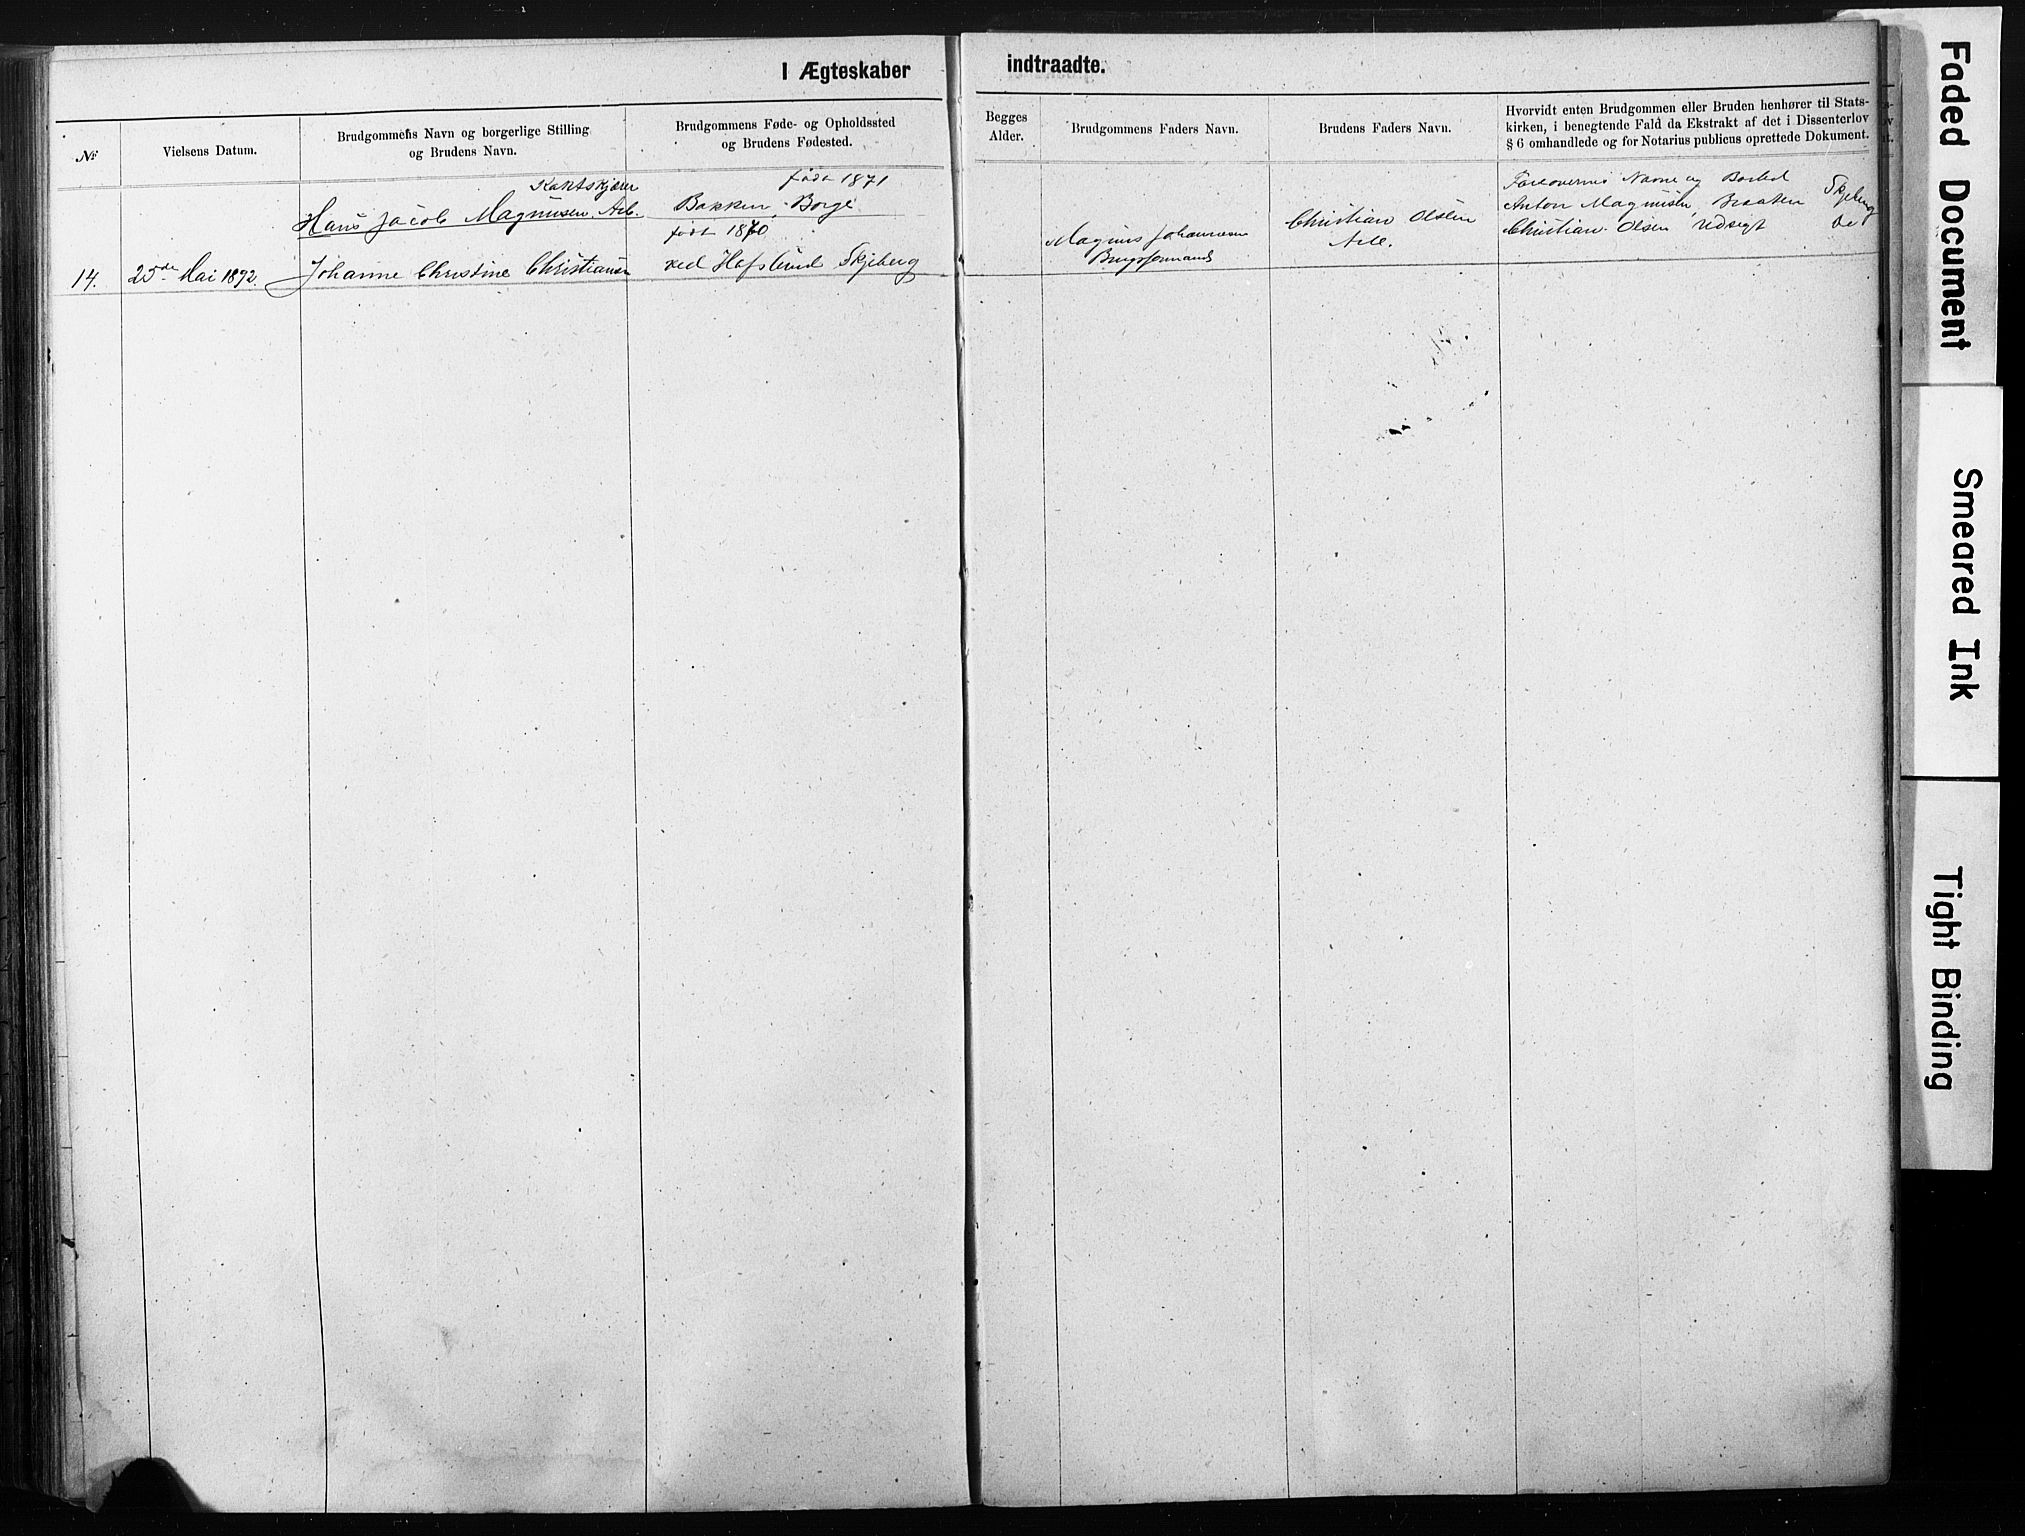 I Ægteskaber
№
Vielsens Datum.
Brudgommens Navn og borgerlige Stilling
og Brudens Navn.
Brudgommens Føde- og Opholdssted
og Brudens Fødested.
født 1871
Hans Jacob Magnusen Arb.
Bakken, Borge
født 1870
14.
25de Mai 1892.
Johanne Christine Christiansen
ved Hafslund Skjeberg
indtraadte.
Begges
Alder.
Brudgommens Faders Navn.
Brudens Faders Navn.
Hvorvidt enten Brudgommen eller Bruden henhører til Stats-
kirken, i benegtende Fald da Ekstrakt af det i Dissenterlov
§ 6 omhandlede og for Notarius publicus oprettede Dokument.
Forlovernes Navne og Bosted
Anton Magnusen, Braaten Skjeberg
Christian Olsen Udsigt
Christian Olsen
Arb.
Magnus Johannesen
Faded Document
Smeared Ink
Tight Binding